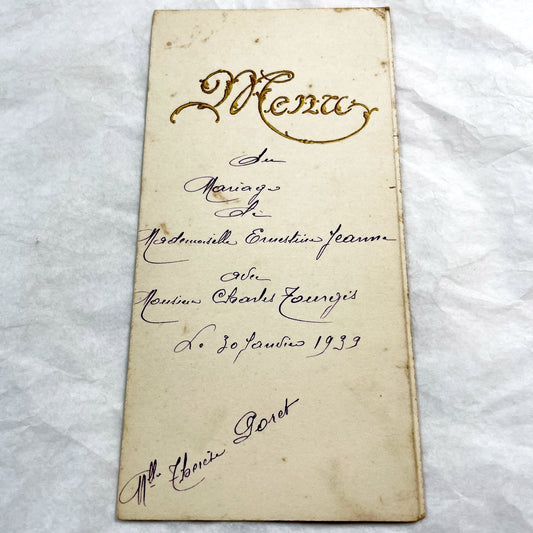 Menu
du
Mariage
de
Mademoiselle Ernestine Jeanne
avec
Monsieur Charles Tourgis
Le 30 Janvier 1939
Mlle Thérèse Poret